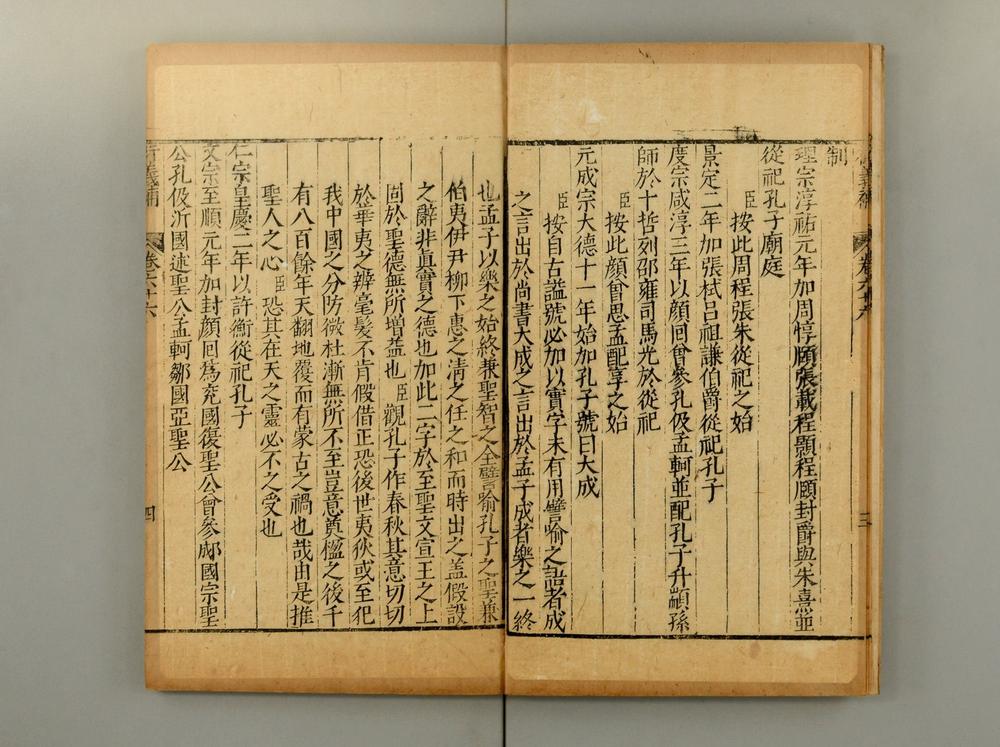 制
理宗淳祐元年加周惇頤張載程顥程頤封爵與朱熹並
從祀孔子廟庭
臣按此周程張朱從祀之始
景定二年加張栻呂祖謙伯爵從祀孔子
度宗咸淳三年以顏回曾參孔伋孟軻並配孔子升顓孫
師於十哲列邵雍司馬光於從祀
臣按此顏曾思孟配享之始
元成宗大德十一年始加孔子號曰大成
臣按自古謚號必加以實字未有用譬喻之語者成
之言出於尚書大成之言出於孟子成者樂之一終
也孟子以樂之始終兼聖智之全譬喻孔子之聖兼
伯夷伊尹柳下惠之清之任之和而時出之盖假設
之辭非真實之德也加此二字於至聖文宣王之上
固於聖德無所增益也臣觀孔子作春秋其意切切
於華夷之辨毫髮不肯假借正恐後世夷狄或至犯
我中國之分防微杜漸無所不至豈意奠楹之後千
有八百餘年天翻地覆而有蒙古之禍也哉由是推
聖人之心臣恐其在天之靈必不之受也
仁宗皇慶二年以許衡從祀孔子
文宗至順元年加封顏回為兗國復聖公曾參郕國宗聖
公孔伋沂國述聖公孟軻鄒國亞聖公
卷六十六
四